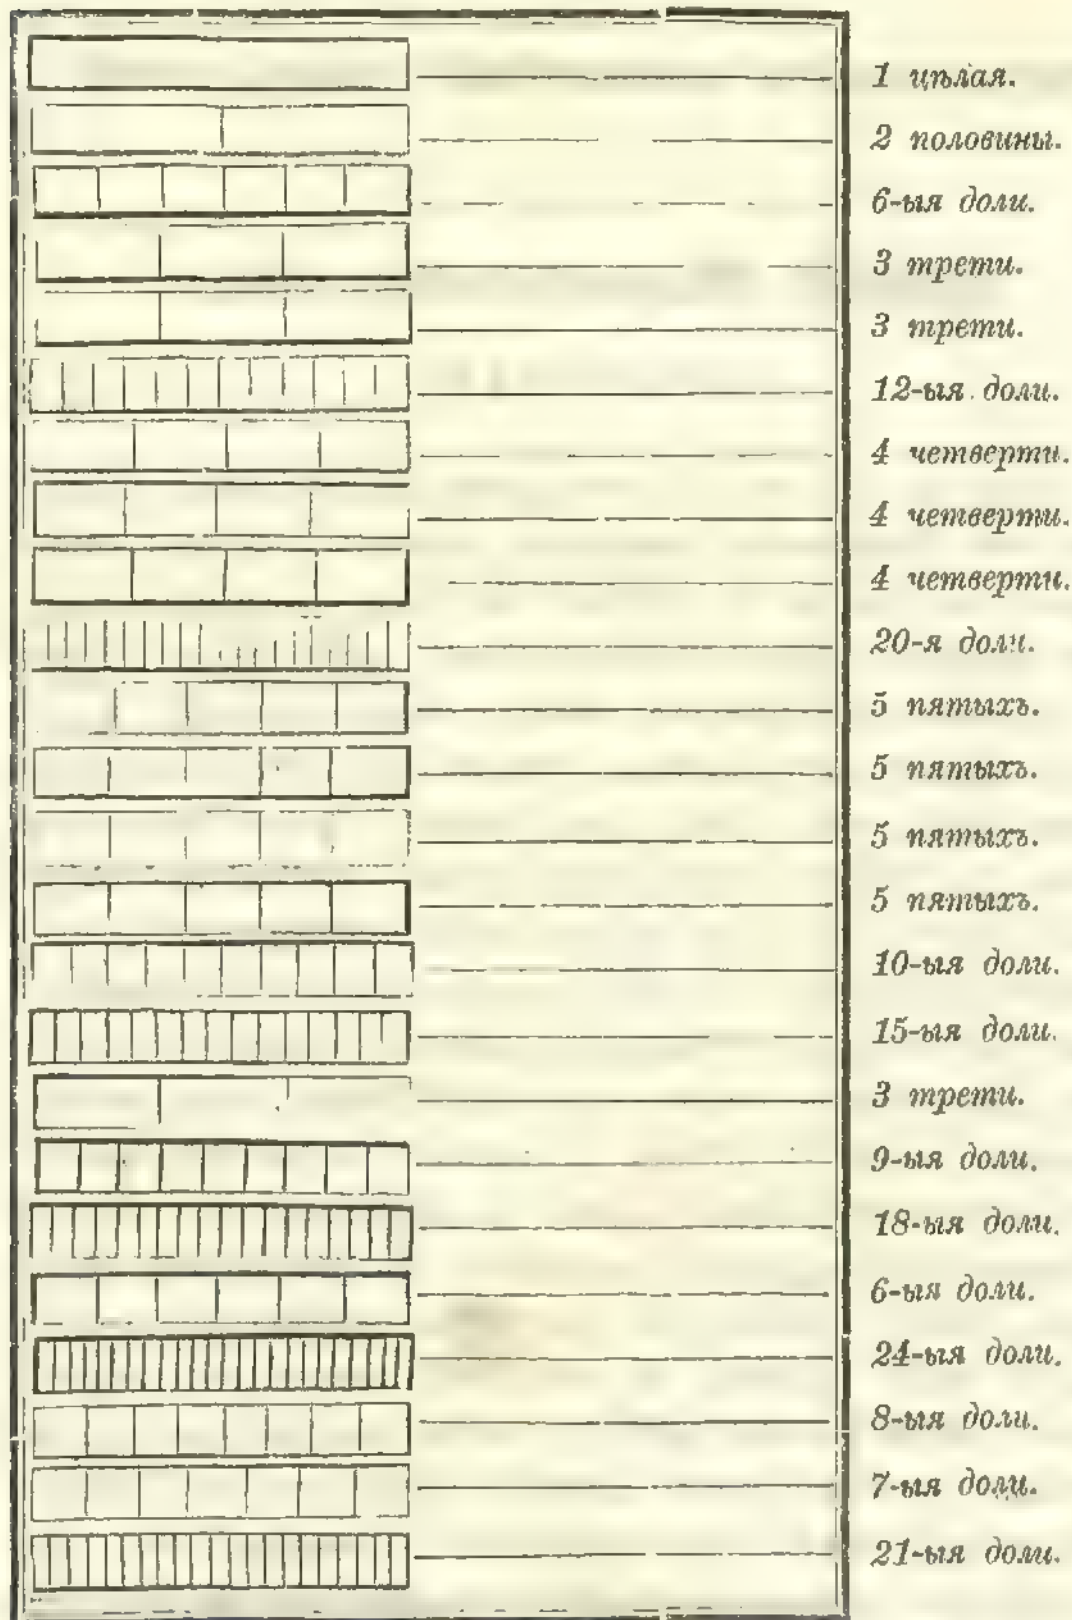 1 цѣлая.
2 половины.
6-ыя доли.
3 трети.
3 трети.
12-ыя доли.
4 четверти.
4 четверти.
4 четверти.
20-я доли.
5 пятыхъ.
5 пятыхъ.
5 пятыхъ.
5 пятыхъ.
10-ыя доли.
15-ыя доли.
3 трети.
9-ыя доли.
18-ыя доли.
6-ыя доли.
24-ыя доли.
8-ыя доли.
7-ыя доли.
21-ыя доли.